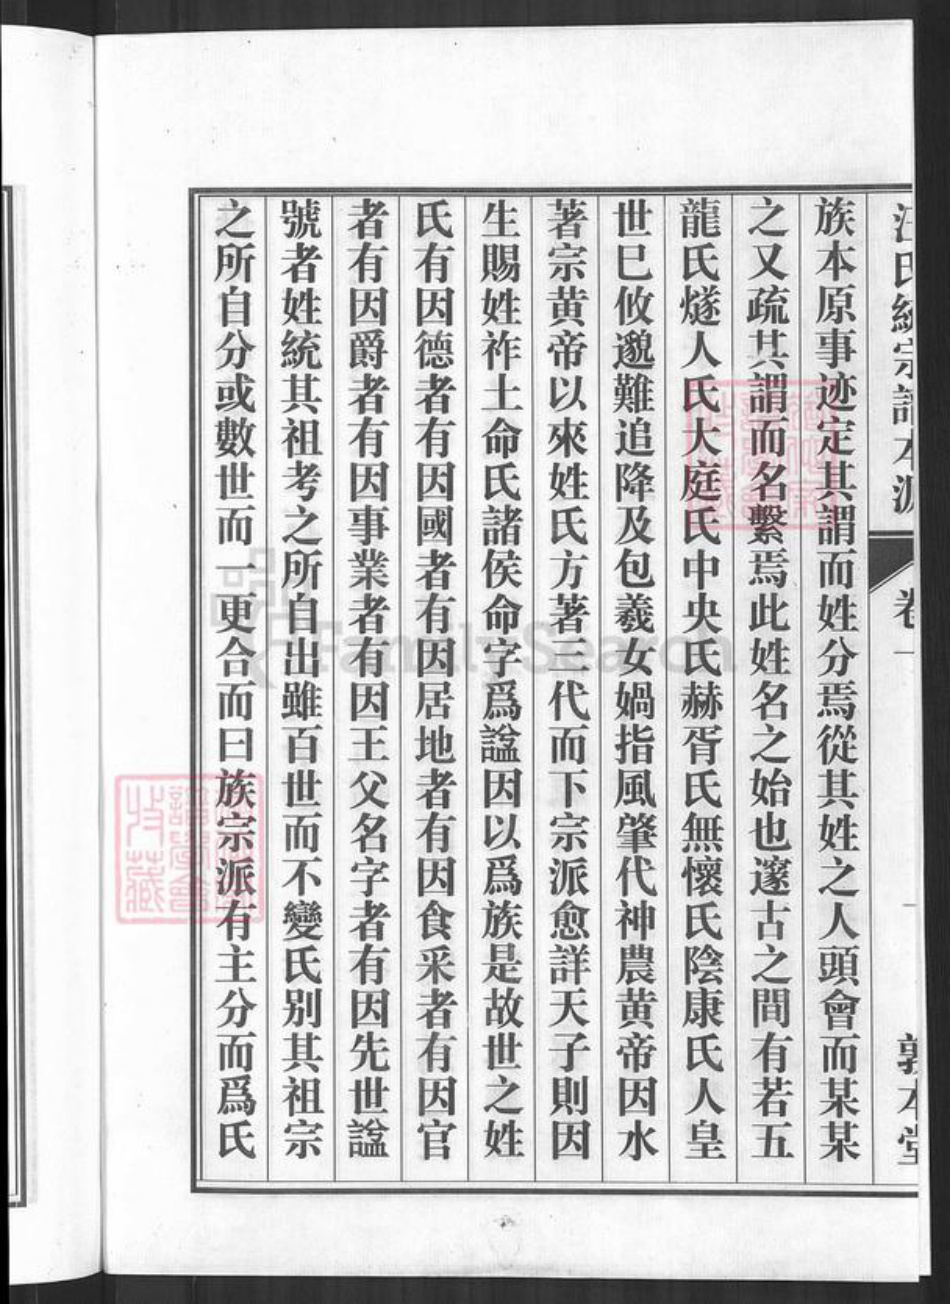 汪氏統宗譜本源 卷一 敦本堂
族本原事迹定其謂而姓分焉從其姓之人頭會而某某
之又疏其謂而名繫焉此姓名之始也邃古之間有若五
龍氏燧人氏大庭氏中央氏赫胥氏無懷氏陰康氏人皇
世巳攸邈難追降及包羲女媧指風肇代神農黄帝因水
著宗黄帝以來姓氏方著三代而下宗派愈詳天子則因
生賜姓祚土命氏諸侯命字爲諡因以爲族是故世之姓
氏有因德者有因國者有因居地者有因食采者有因官
者有因爵者有因事業者有因王父名字者有因先世諡
號者姓統其祖考之所自出雖百世而不變氏别其祖宗
之所自分或數世而一更合而曰族宗派有主分而爲氏
FamilySearch